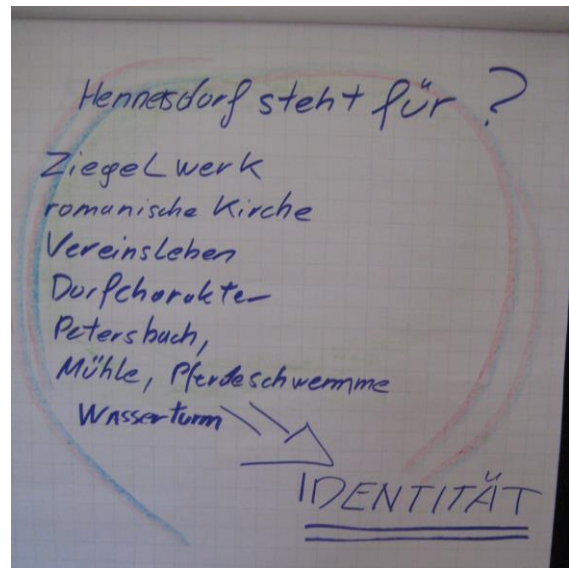 Hennersdorf steht für?
Ziegelwerk
romanische Kirche
Vereinsleben
Dorfcharakter
Petersbach,
Mühle, Pferdeschwemme
Wasserturm
IDENTITÄT